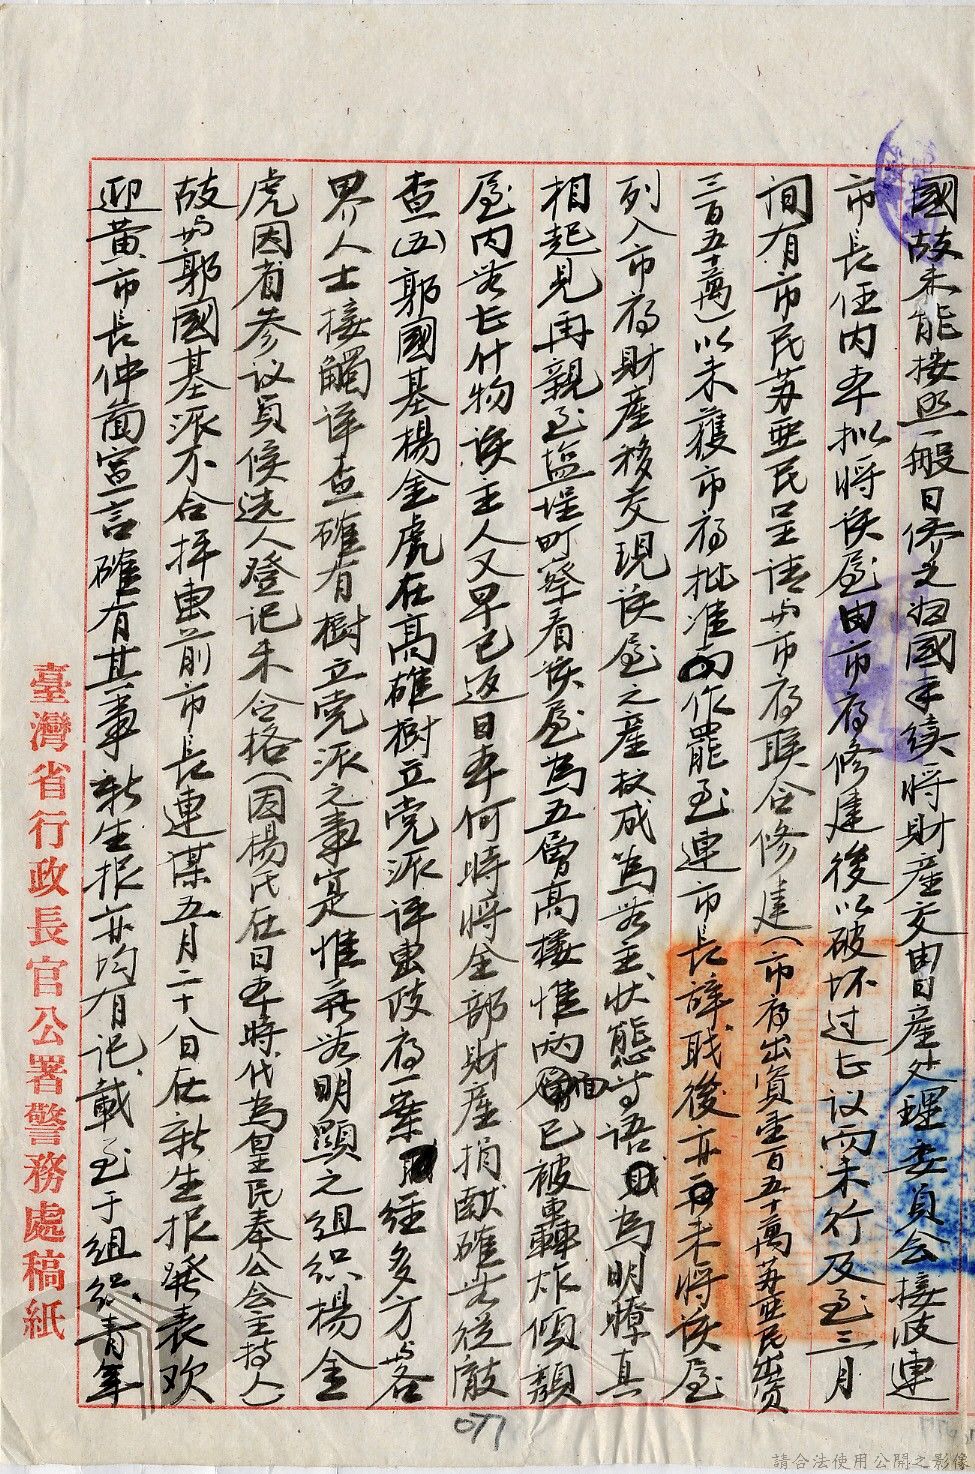 國故未能按照一般日僑之归國手续將財產交由日產处理委員会接收連
市長任内本拟将该屋由市府修建後以破坏过巨议而未行及至三月
间有市民苏亜民呈请与市府联合修建(市府出資壹百五十萬苏亜民出資
三百五十萬)以未獲市府批准而作罷至連市長辞职後亦未将该屋
列入市府財產移交現该屋之産权成為无主状態等语為明瞭真
相起見再親至塩埕町察看该屋為五層高楼惟兩面已被轟炸傾頹
屋内並无什物该主人又早已返日本何時将全部財產捐献確无從敲
查(五)郭國基楊金虎在高雄樹立党派评事政府一案經多方与各
界人士接觸详查確有樹立党派之事实惟並无明顯之组织楊金
虎因省参议員候选人登记未合格(因楊氏在日本時代為皇民奉公会主持人)
故与郭國基派不合拝事前市長連謀五月二十八日在新生报發表欢
迎黃市長仲圖宣言確有其事新生报亦均有记載至于组织青年
臺灣省行政長官公署警務處稿紙
077
請合法使用公開之影像